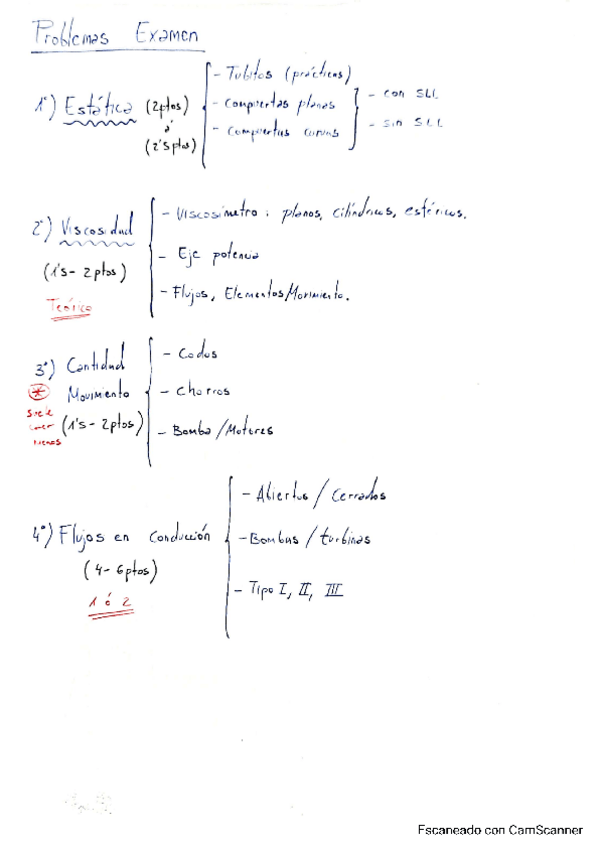 Problemas Examen
1º) Estática (2ptos) ó (2'5ptos)
- Tubitos (prácticos)
- compuertas planas
- compuertas curvas
- con SLL
- sin SLL
2º) Viscosidad
(1'5 - 2ptos)
Teórico
- Viscosímetro: planos, cilíndricos, esféricos.
- Eje potencia
- Flujos, Elementos/Movimiento.
3º) Cantidad Movimiento
(1'5 - 2ptos)
* Suele caer menos
- Codos
- Chorros
- Bomba/Motores
4º) Flujos en conducción
(4 - 6ptos)
1 ó 2
- Abiertos / Cerrados
- Bombas / turbinas
- Tipo I, II, III
Escaneado con CamScanner